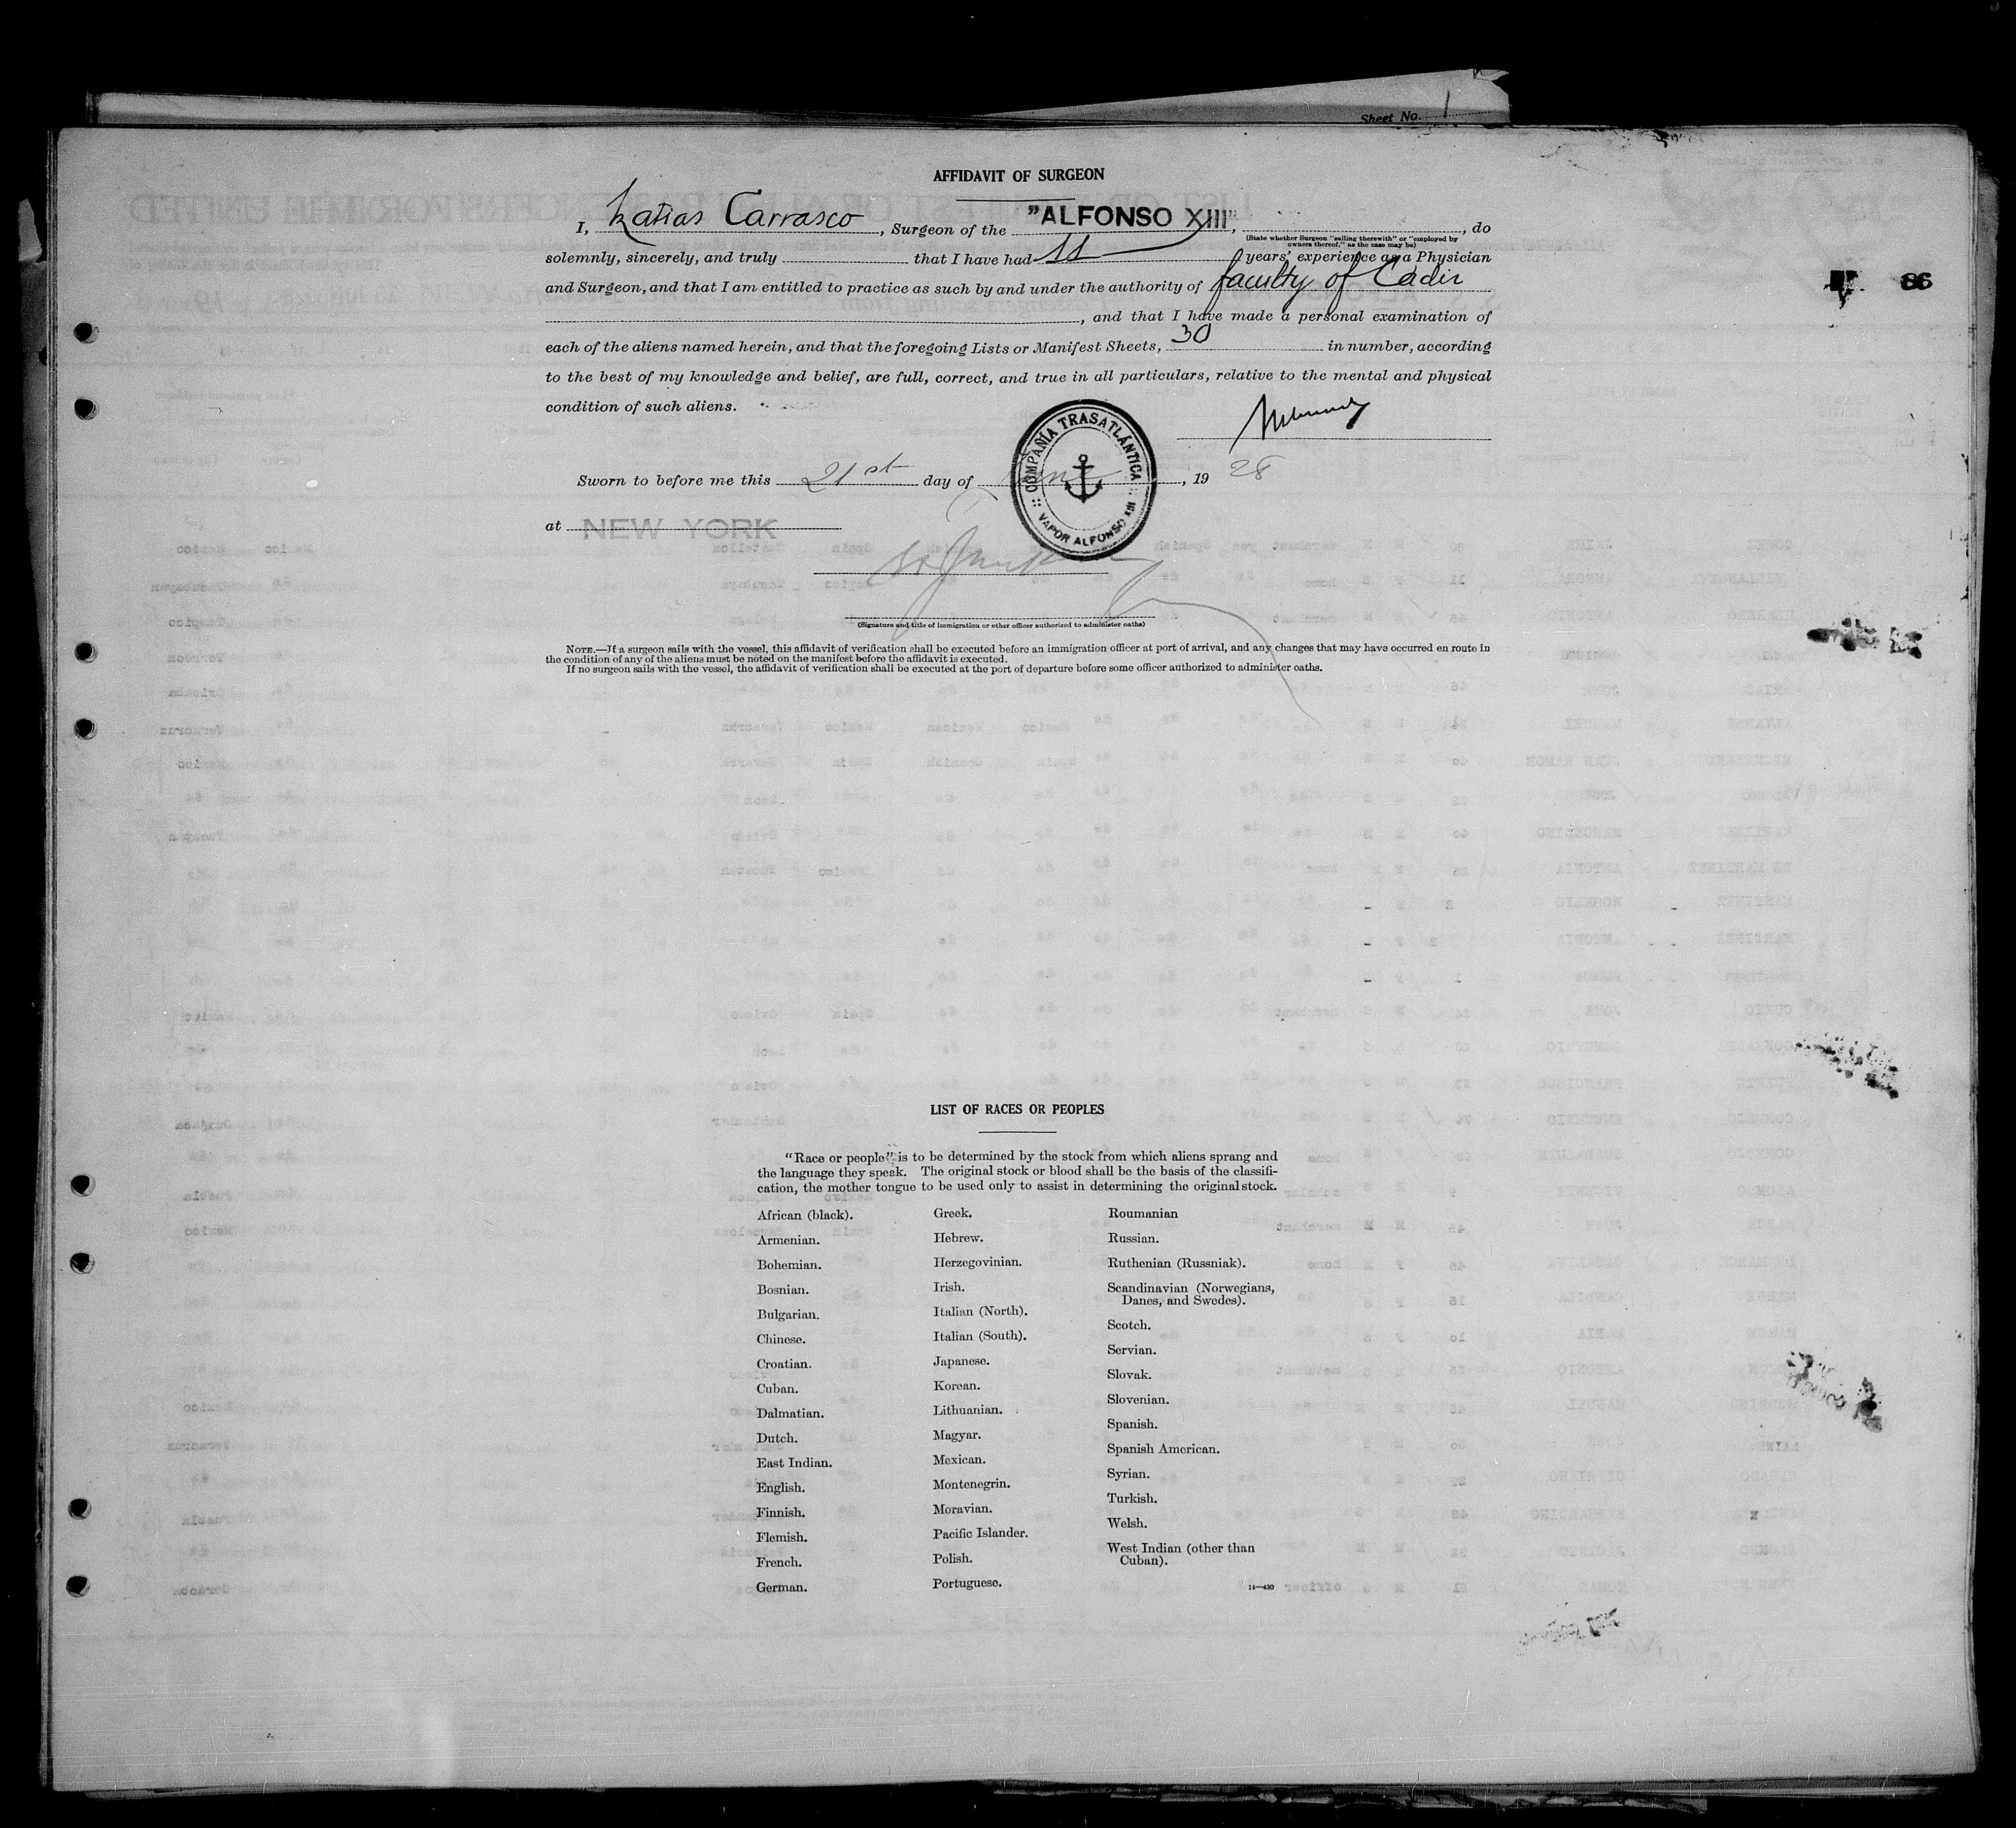 Sheet No. 1
AFFIDAVIT OF SURGEON
I, Matias Carrasco, Surgeon of the "ALFONSO XIII", , do
(State whether Surgeon "sailing therewith" or "employed by
owners thereof," as the case may be)
solemnly, sincerely, and truly that I have had 11 years' experience as a Physician
and Surgeon, and that I am entitled to practice as such by and under the authority of faculty of Cadiz
, and that I have made a personal examination of
each of the aliens named herein, and that the foregoing Lists or Manifest Sheets, 30 in number, according
to the best of my knowledge and belief, are full, correct, and true in all particulars, relative to the mental and physical
condition of such aliens.
86
COMPAÑÍA TRASATLÁNTICA
VAPOR ALFONSO XIII
Sworn to before me this 21st day of June, 1928
at NEW YORK
(Signature and title of immigration or other officer authorized to administer oaths)
NOTE.—If a surgeon sails with the vessel, this affidavit of verification shall be executed before an immigration officer at port of arrival, and any changes that may have occurred en route in
the condition of any of the aliens must be noted on the manifest before the affidavit is executed.
If no surgeon sails with the vessel, the affidavit of verification shall be executed at the port of departure before some officer authorized to administer oaths.
LIST OF RACES OR PEOPLES
"Race or people" is to be determined by the stock from which aliens sprang and
the language they speak. The original stock or blood shall be the basis of the classifi-
cation, the mother tongue to be used only to assist in determining the original stock.
African (black).
Armenian.
Bohemian.
Bosnian.
Bulgarian.
Chinese.
Croatian.
Cuban.
Dalmatian.
Dutch.
East Indian.
English.
Finnish.
Flemish.
French.
German.
Greek.
Hebrew.
Herzegovinian.
Irish.
Italian (North).
Italian (South).
Japanese.
Korean.
Lithuanian.
Magyar.
Mexican.
Montenegrin.
Moravian.
Pacific Islander.
Polish.
Portuguese.
Roumanian
Russian.
Ruthenian (Russniak).
Scandinavian (Norwegians,
Danes, and Swedes).
Scotch.
Servian.
Slovak.
Slovenian.
Spanish.
Spanish American.
Syrian.
Turkish.
Welsh.
West Indian (other than
Cuban).
14—430